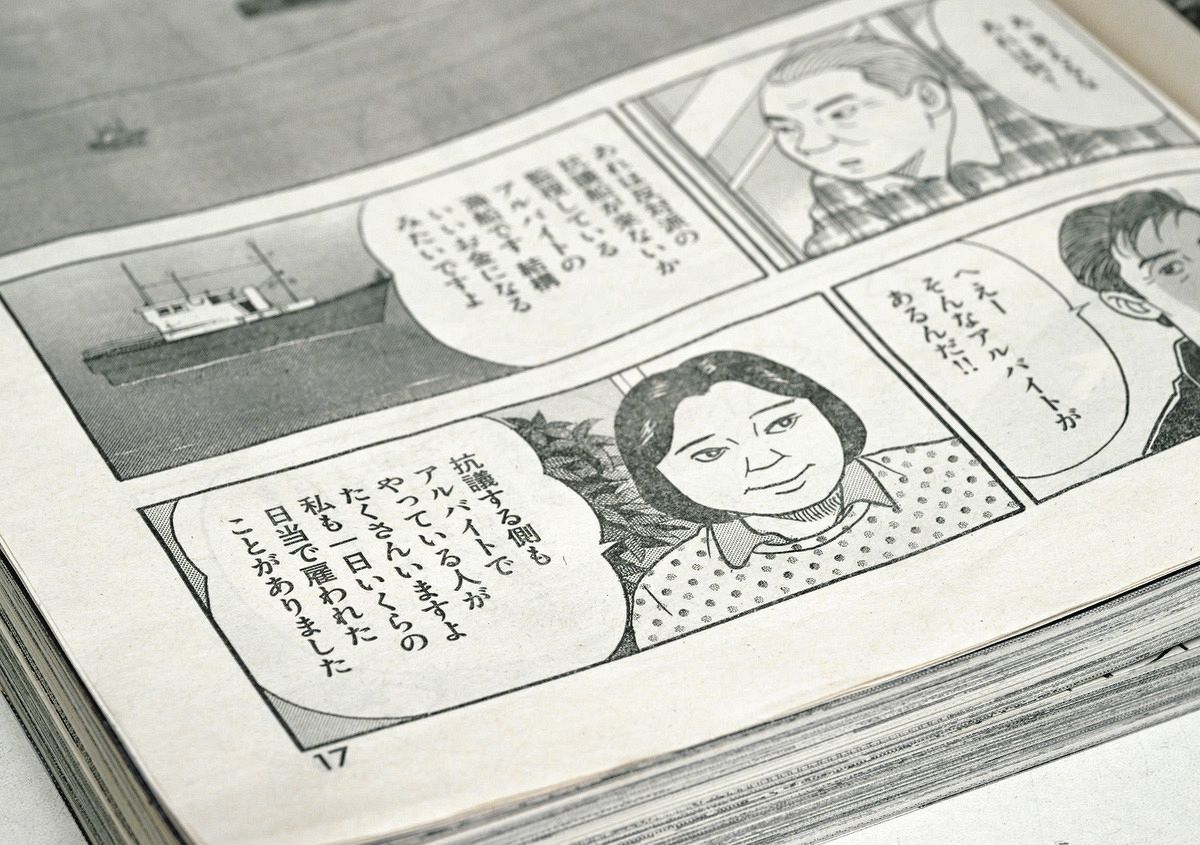 あれは反対派の
抗議船が来ないか
監視している
アルバイトの
漁船です 結構
いいお金になる
みたいですよ
へえー
そんなアルバイトが
あるんだ!!
抗議する側も
アルバイトで
やっている人が
たくさんいますよ
私も一日いくらの
日当で雇われた
ことがありました
17